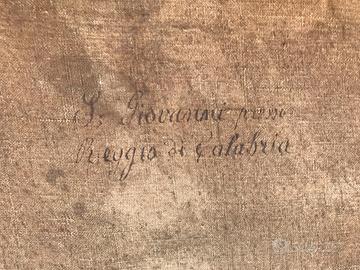 S. Giovanni
Reggio di Calabria